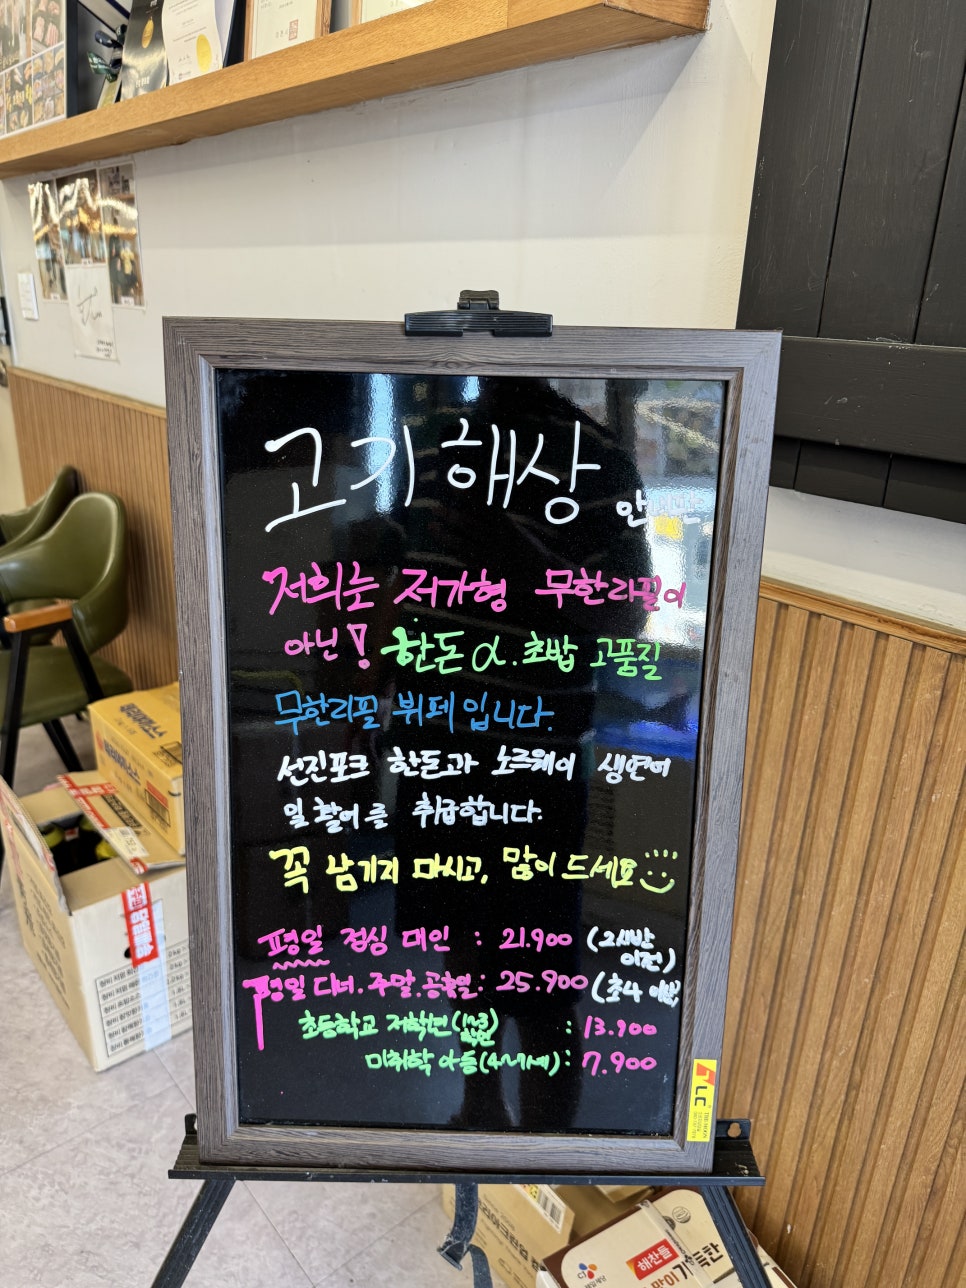 고기해상
저희는 저가형 무한리필이
아닌! 한돈α.초밥 고품질
무한리필 뷔페입니다.
선진포크 한돈과 노르웨이 생연어
일 활어를 취급합니다.
꼭 남기지 마시고, 많이 드세요
평일 점심 대인 : 21.900 (2시반
이전)
평일 디너.주말.공휴일: 25.900 (초4 이상)
초등학교 저학년 : 13.900
미취학 아동(4~7세): 7.900
LC
CJ
해찬들